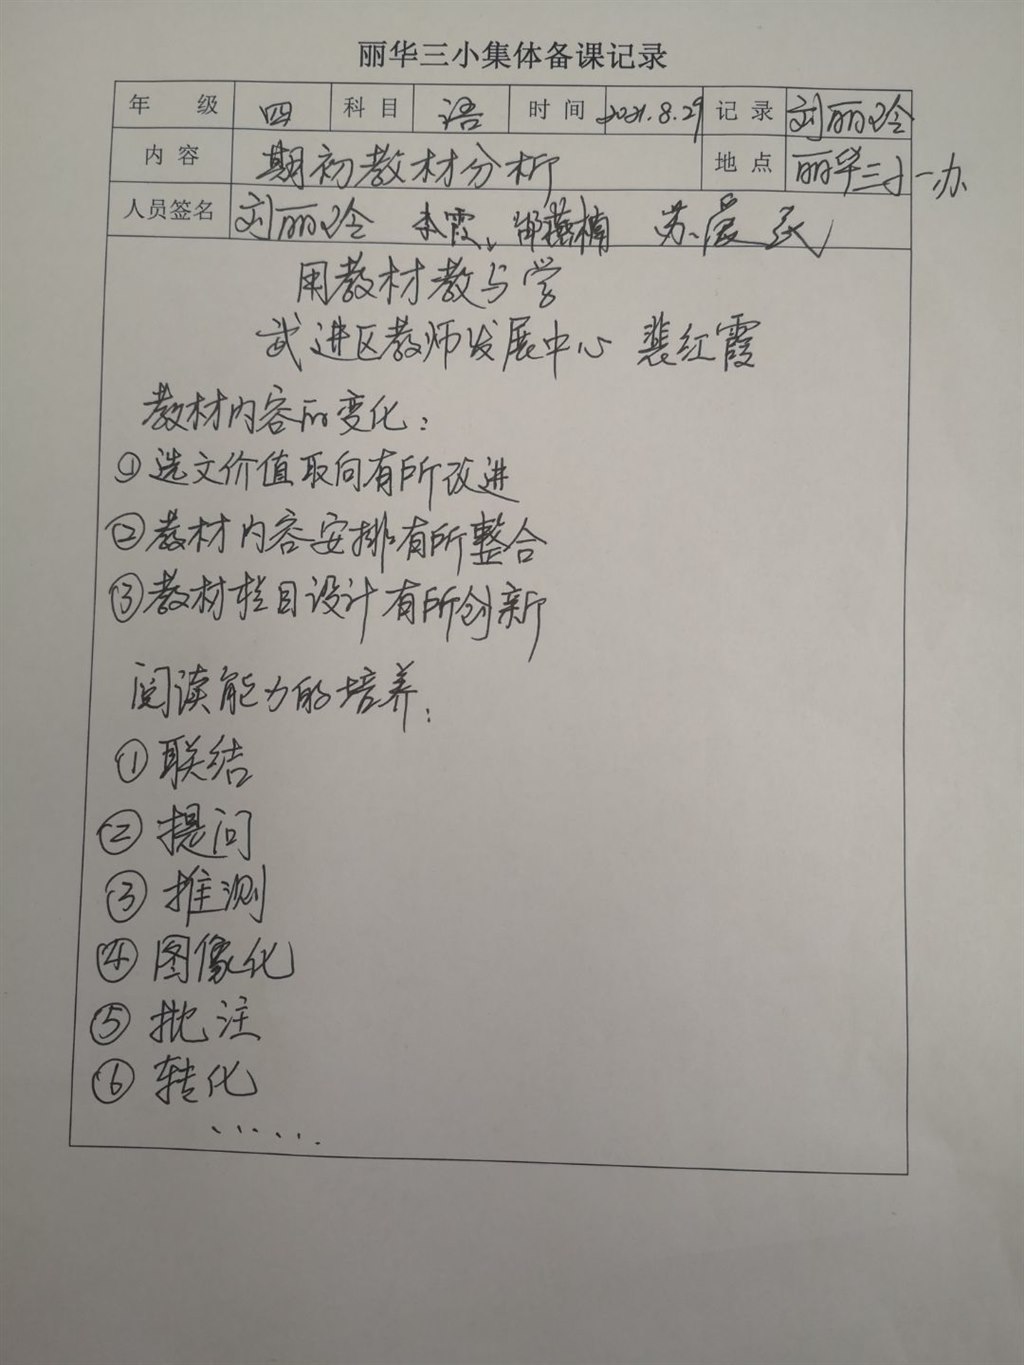 丽华三小集体备课记录
年 级 四 科 目 语 时 间 2021.8.29 记 录 刘丽玲
内 容 期初教材分析 地 点 丽华三小一办
人员签名 刘丽玲 霞、 苏爱民
用教材教与学
武进区教师发展中心 裴红霞
教材内容的变化：
①选文价值取向有所改进
②教材内容安排有所整合
③教材栏目设计有所创新
阅读能力的培养：
① 联结
② 提问
③ 推测
④ 图像化
⑤ 批注
⑥ 转化
......